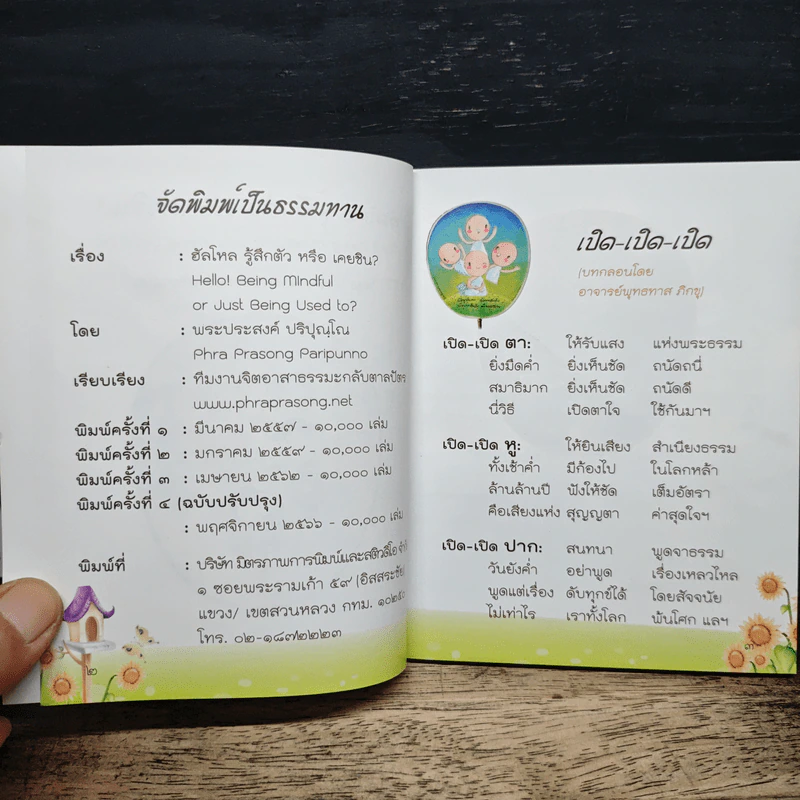 จัดพิมพ์เป็นธรรมทาน
เรื่อง : ฮัลโหล รู้สึกตัว หรือ เคยชิน?
Hello! Being Mindful
or Just Being Used to?
โดย : พระประสงค์ ปริปุณฺโณ
Phra Prasong Paripunno
เรียบเรียง : ทีมงานจิตอาสาธรรมะกลับตาลปัตร
www.phraprasong.net
พิมพ์ครั้งที่ ๑ : มีนาคม ๒๕๕๗ - ๑๐,๐๐๐ เล่ม
พิมพ์ครั้งที่ ๒ : มกราคม ๒๕๕๙ - ๑๐,๐๐๐ เล่ม
พิมพ์ครั้งที่ ๓ : เมษายน ๒๕๖๒ - ๑๐,๐๐๐ เล่ม
พิมพ์ครั้งที่ ๔ (ฉบับปรับปรุง)
: พฤศจิกายน ๒๕๖๖ - ๑๐,๐๐๐ เล่ม
พิมพ์ที่ : บริษัท มิตรภาพการพิมพ์และสติวดีโอ จำกั
๑ ซอยพระรามเก้า ๕๙ (อิสสระชัย)
แขวง/ เขตสวนหลวง กทม. ๑๐๒๕๐
โทร. ๐๒-๑๘๗๒๒๒๓
๒
เปิด-เปิด-เปิด
(บทกลอนโดย
อาจารย์พุทธทาส ภิกขุ)
เปิด-เปิด ตา: ให้รับแสง แห่งพระธรรม
ยิ่งมืดค่ำ ยิ่งเห็นชัด ถนัดถนี่
สมาธิมาก ยิ่งเห็นชัด ถนัดดี
นี่วิธี เปิดตาใจ ใช้กันมาฯ
เปิด-เปิด หู: ให้ยินเสียง สำเนียงธรรม
ทั้งเช้าค่ำ มีก้องไป ในโลกหล้า
ล้านล้านปี ฟังให้ชัด เต็มอัตรา
คือเสียงแห่ง สุญญตา ค่าสุดใจฯ
เปิด-เปิด ปาก: สนทนา พูดจาธรรม
วันยังค่ำ อย่าพูด เรื่องเหลวไหล
พูดแต่เรื่อง ดับทุกข์ได้ โดยสัจจนัย
ไม่เท่าไร เราทั้งโลก พ้นโศก แลฯ
๓